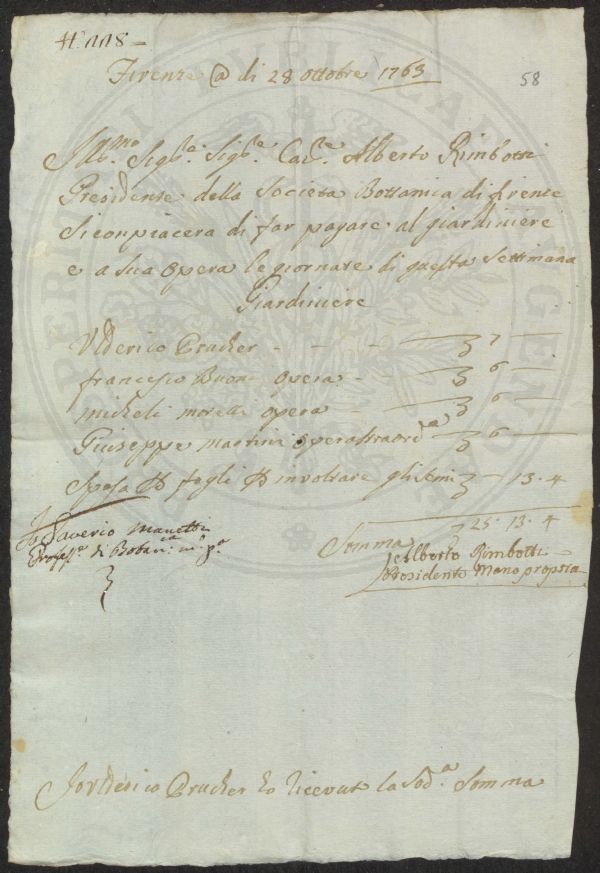 N. 118 -
Firenze @ di 28 ottobre 1763
58
Ill.mo Sig.re Sig.re Cav.re Alberto Rimbotti
Presidente della Societa Bottanica di firenze
Si conpiacera di far pagare al giardiniere
e a sua opera le giornate di questa Settimana
Giardiniere
Ulderico Prucher - - - - 7 -
francesco Buoni opera - - 6 -
micheli morelli opera - - 6 -
Giuseppe martini opera straord.a - 6 -
Spesa p fogli p involtare gli semi - 13 . 4
Somma 25 . 13 . 4
Io Saverio Manetti
Profess.e di Botan.ca m. p.a
Alberto Rimbotti
Presidente Mano propria
Io Ulderico Prucher ho ricevuto la Sod.a Somma
PERICULI PUBLICAE GENDAE